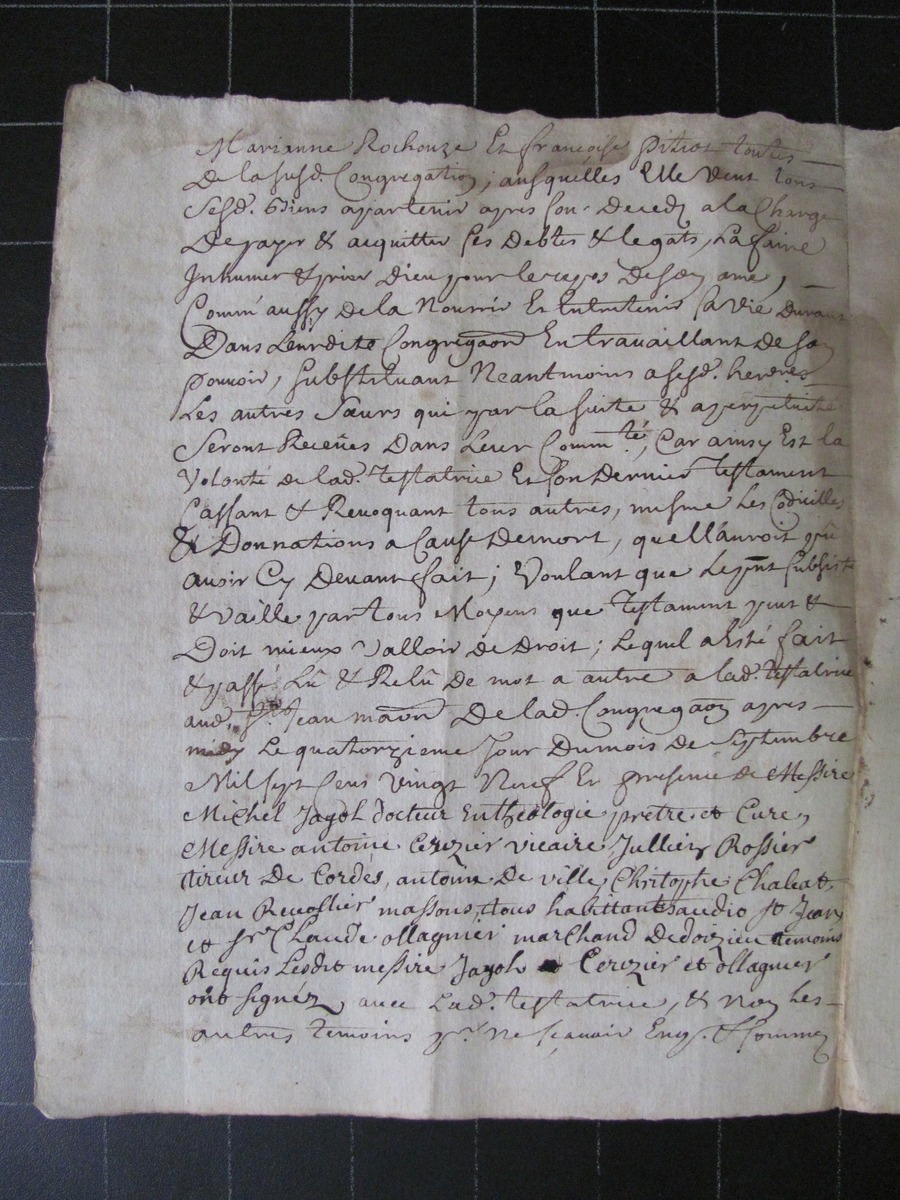 Marianne Rochouze Et francoise pitiot toutes
De la susd. Congregation, ausquelles Elle Veut tous
Sesd. Biens apartenir apres son Decedz a la Charge
De payer & acquitter ses Debtes & legats, La faire
Inhumer & prier Dieu pour le repos De son ame,
Comm' aussy De la Nourrir Et Entretenir sa Vie Durant
Dans Leurdite Congregaon En travaillant De son
pouvoir, Substituant Neantmoins a sesd. herres
Les autres Sœurs qui par la suite & a perpetuité
Seront Receües Dans Leur Commté, Car ainsy Est la
Volonté de lad. Testatrice Et son Dernier Testament
Cassant & Revoquant tous autres, mesme Les Codicilles
& Donnations a Cause De mort, quell'auroit pû
avoir Cy Devant fait; Voulant que Le pnt Subsiste
& vaille par tous Moyens que Testament peut &
Doit mieux Valloir de Droit; Lequel a Esté fait
& passé Lû & Relû De mot a autre a lad. Testatrice
aud. St Jean maon De lad. Congregaon apres
midy Le quatorzieme Jour Du mois De Septembre
Mil sept Cens Vingt Neuf En presence de Messire
Michel Jayol Docteur En theologie pretre et Curé,
Messire antoine Cerozier vicaire Jullien Rossier
tireur De Cordes, antoine De ville, Chritophe Chaleat
Jean Revollier massons, tous habittants audit St Jean
et sr Claude ollagnier marchand De doizieu temoins
Requis Lesdt messire Jayol Cerozier et ollagnier
ont signéz avec Lad. testatrice, & Non Les
autres temoins pr. Ne sçavoir Enqs. & sommez